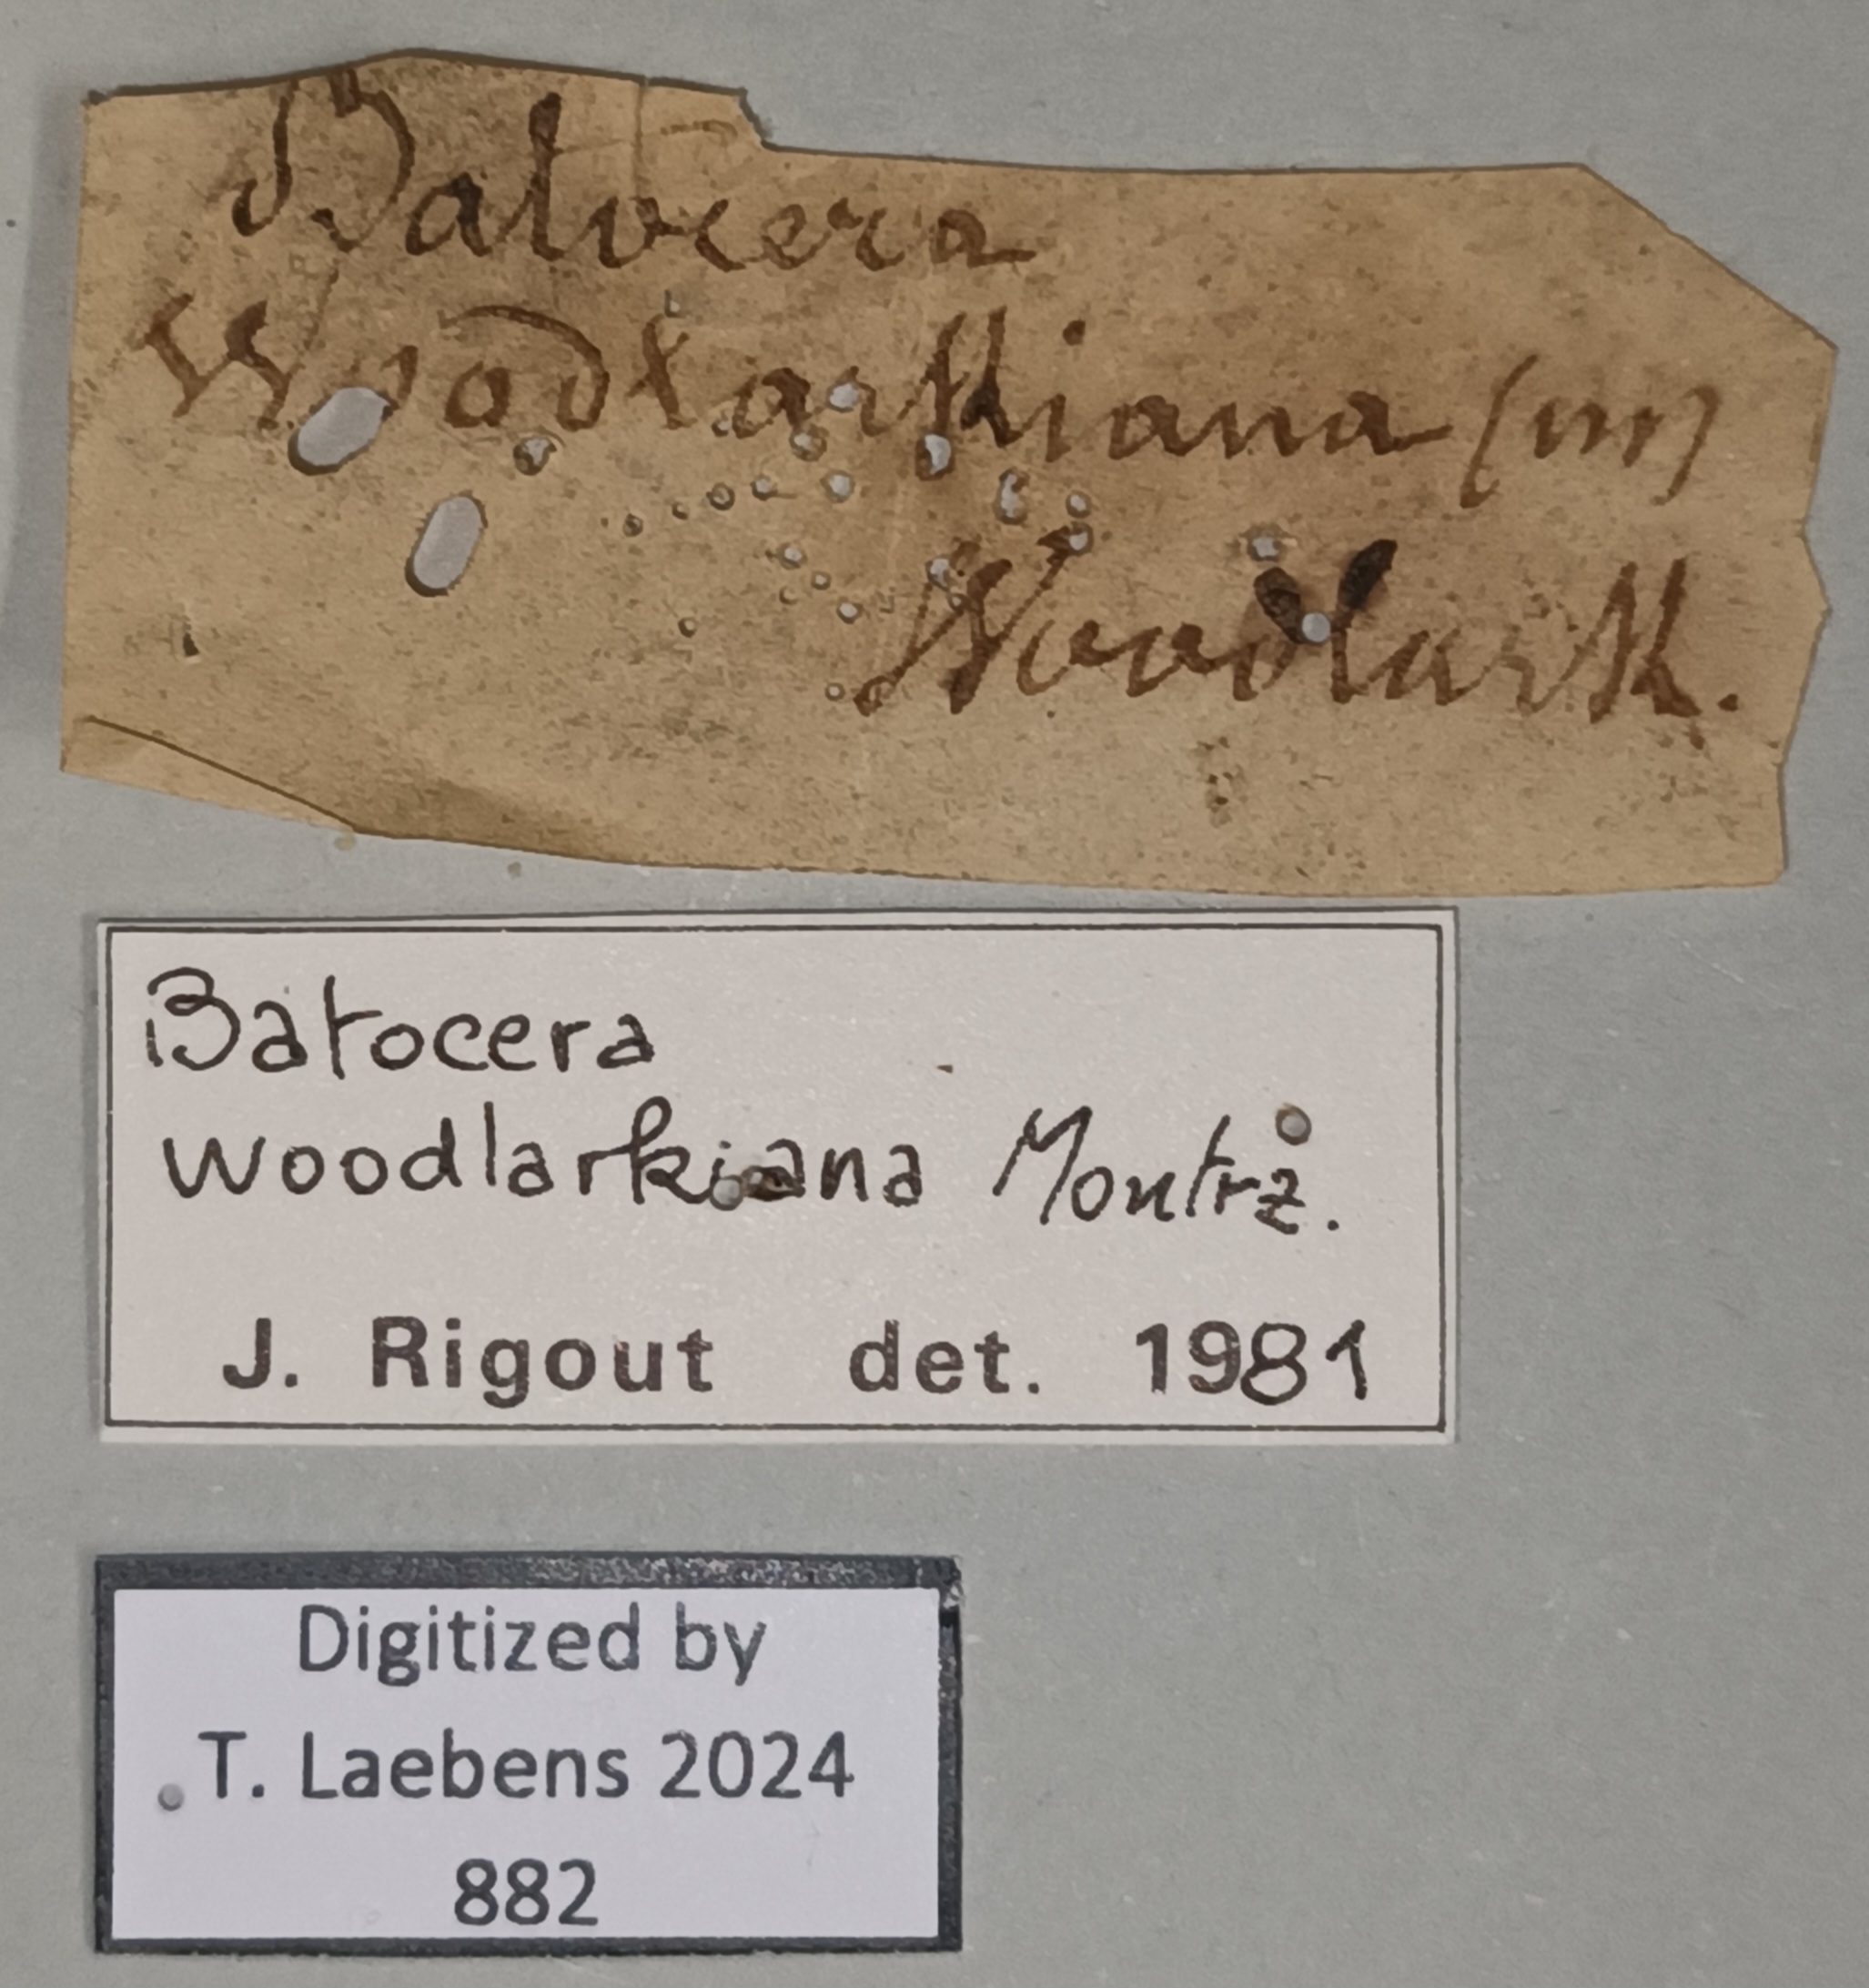 Batocera
Woodlarkiana (m)
Woodlark.
Batocera
woodlarkiana Montrz.
J. Rigout det. 1981
Digitized by
T. Laebens 2024
882